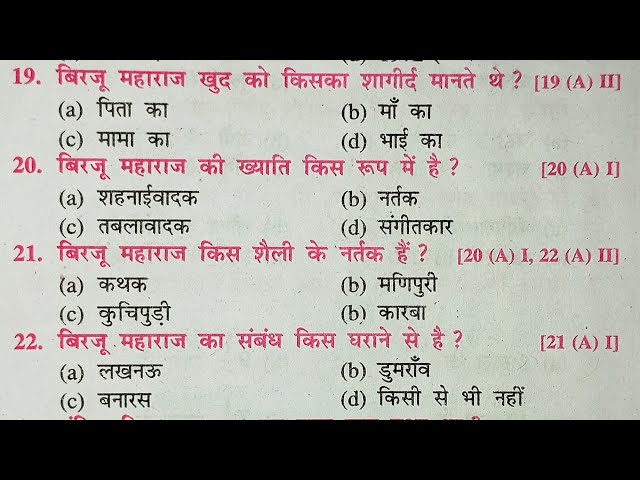 19. बिरजू महाराज खुद को किसका शागीर्द मानते थे ? [19 (A) II]
(a) पिता का (b) माँ का
(c) मामा का (d) भाई का
20. बिरजू महाराज की ख्याति किस रूप में है ? [20 (A) I]
(a) शहनाईवादक (b) नर्तक
(c) तबलावादक (d) संगीतकार
21. बिरजू महाराज किस शैली के नर्तक हैं ? [20 (A) I, 22 (A) II]
(a) कथक (b) मणिपुरी
(c) कुचिपुड़ी (b) कारबा
22. बिरजू महाराज का संबंध किस घराने से है ? [21 (A) I]
(a) लखनऊ (b) डुमराँव
(c) बनारस (d) किसी से भी नहीं